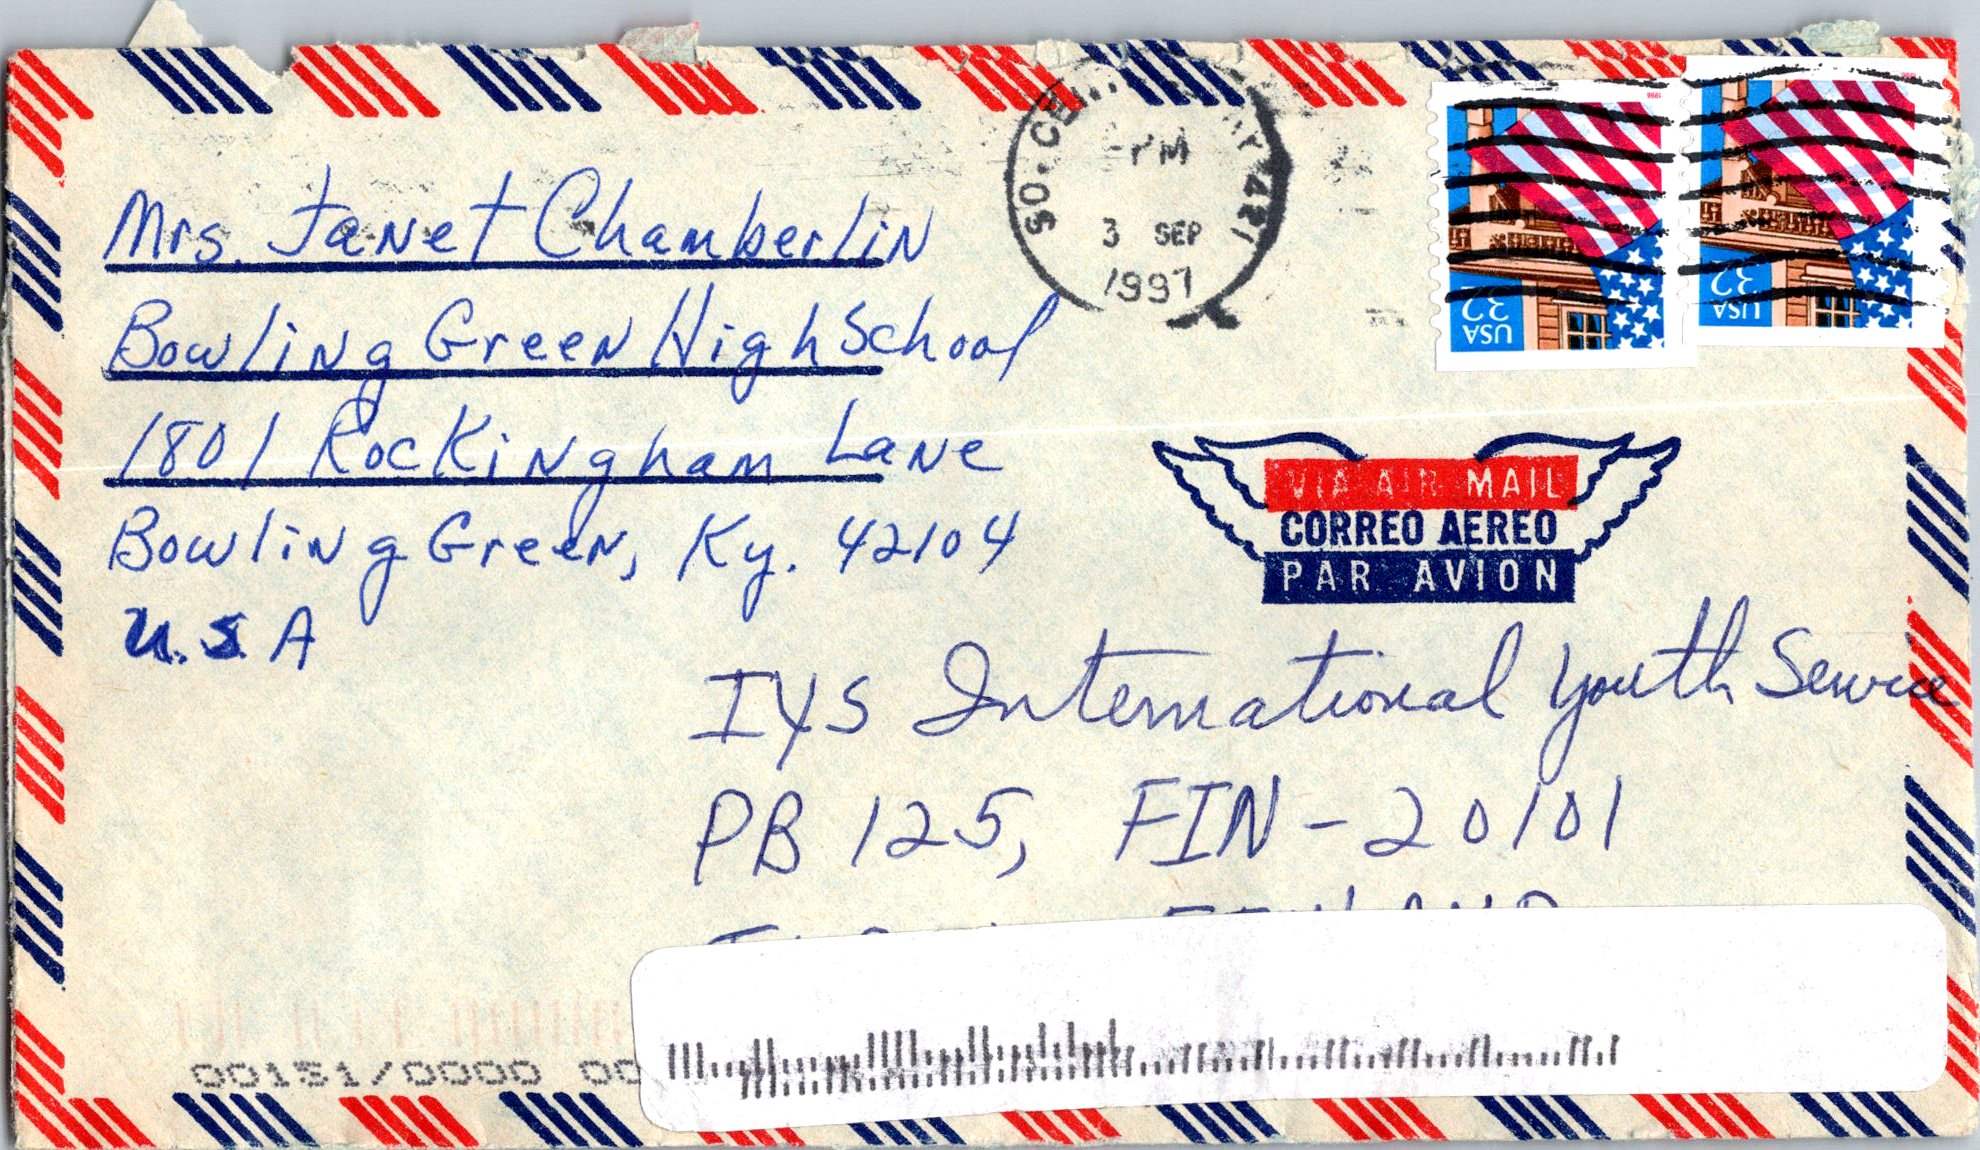 Mrs. Janet Chamberlin
Bowling Green High School
1801 Rockingham Lane
Bowling Green, Ky. 42104
U.S.A
SO. KY 421
PM
3 SEP
1997
1996
USA
32
1996
USA
32
VIA AIR MAIL
CORREO AEREO
PAR AVION
IYS International Youth Service
PB 125, FIN-20101
FINLAND
00151/0000 00